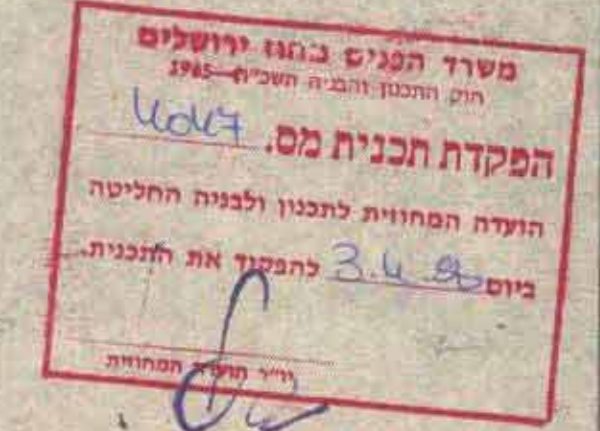 משרד הפנים מחוז ירושלים
חוק התכנון והבניה תשכ"ה—1965
הפקדת תכנית מס.
הועדה המחוזית לתכנון ולבניה החליטה
ביום 3.4. להפקיד את התכנית.
יו"ר הועדה המחוזית